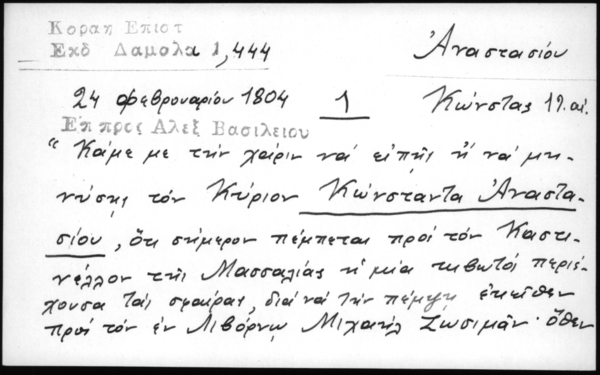 Κοραη Επιστ
Εκδ Δαμαλα 1,444
Ἀναστασίου
24 φεβρουαρίου 1804
1
Κώνστας 19. αἰ.
Επ προς Αλεξ Βασιλειου
"Κάμε με τὴν χάριν νὰ εἰπῇς ἢ νὰ μη-
νύσῃς τὸν Κύριον Κώνσταντα Ἀναστα-
σίου, ὅτι σήμερον πέμπεται πρὸς τὸν Καστι-
νέλλον τῆς Μασσαλίας ἡ μία κιβωτὸς περιέ-
χουσα τὰς σφαίρας, διὰ νὰ τὴν πέμψῃ ἐκεῖθεν
πρὸς τὸν ἐν Λιβόρνῳ Μιχαὴλ Ζωσιμᾶν· ὅθεν